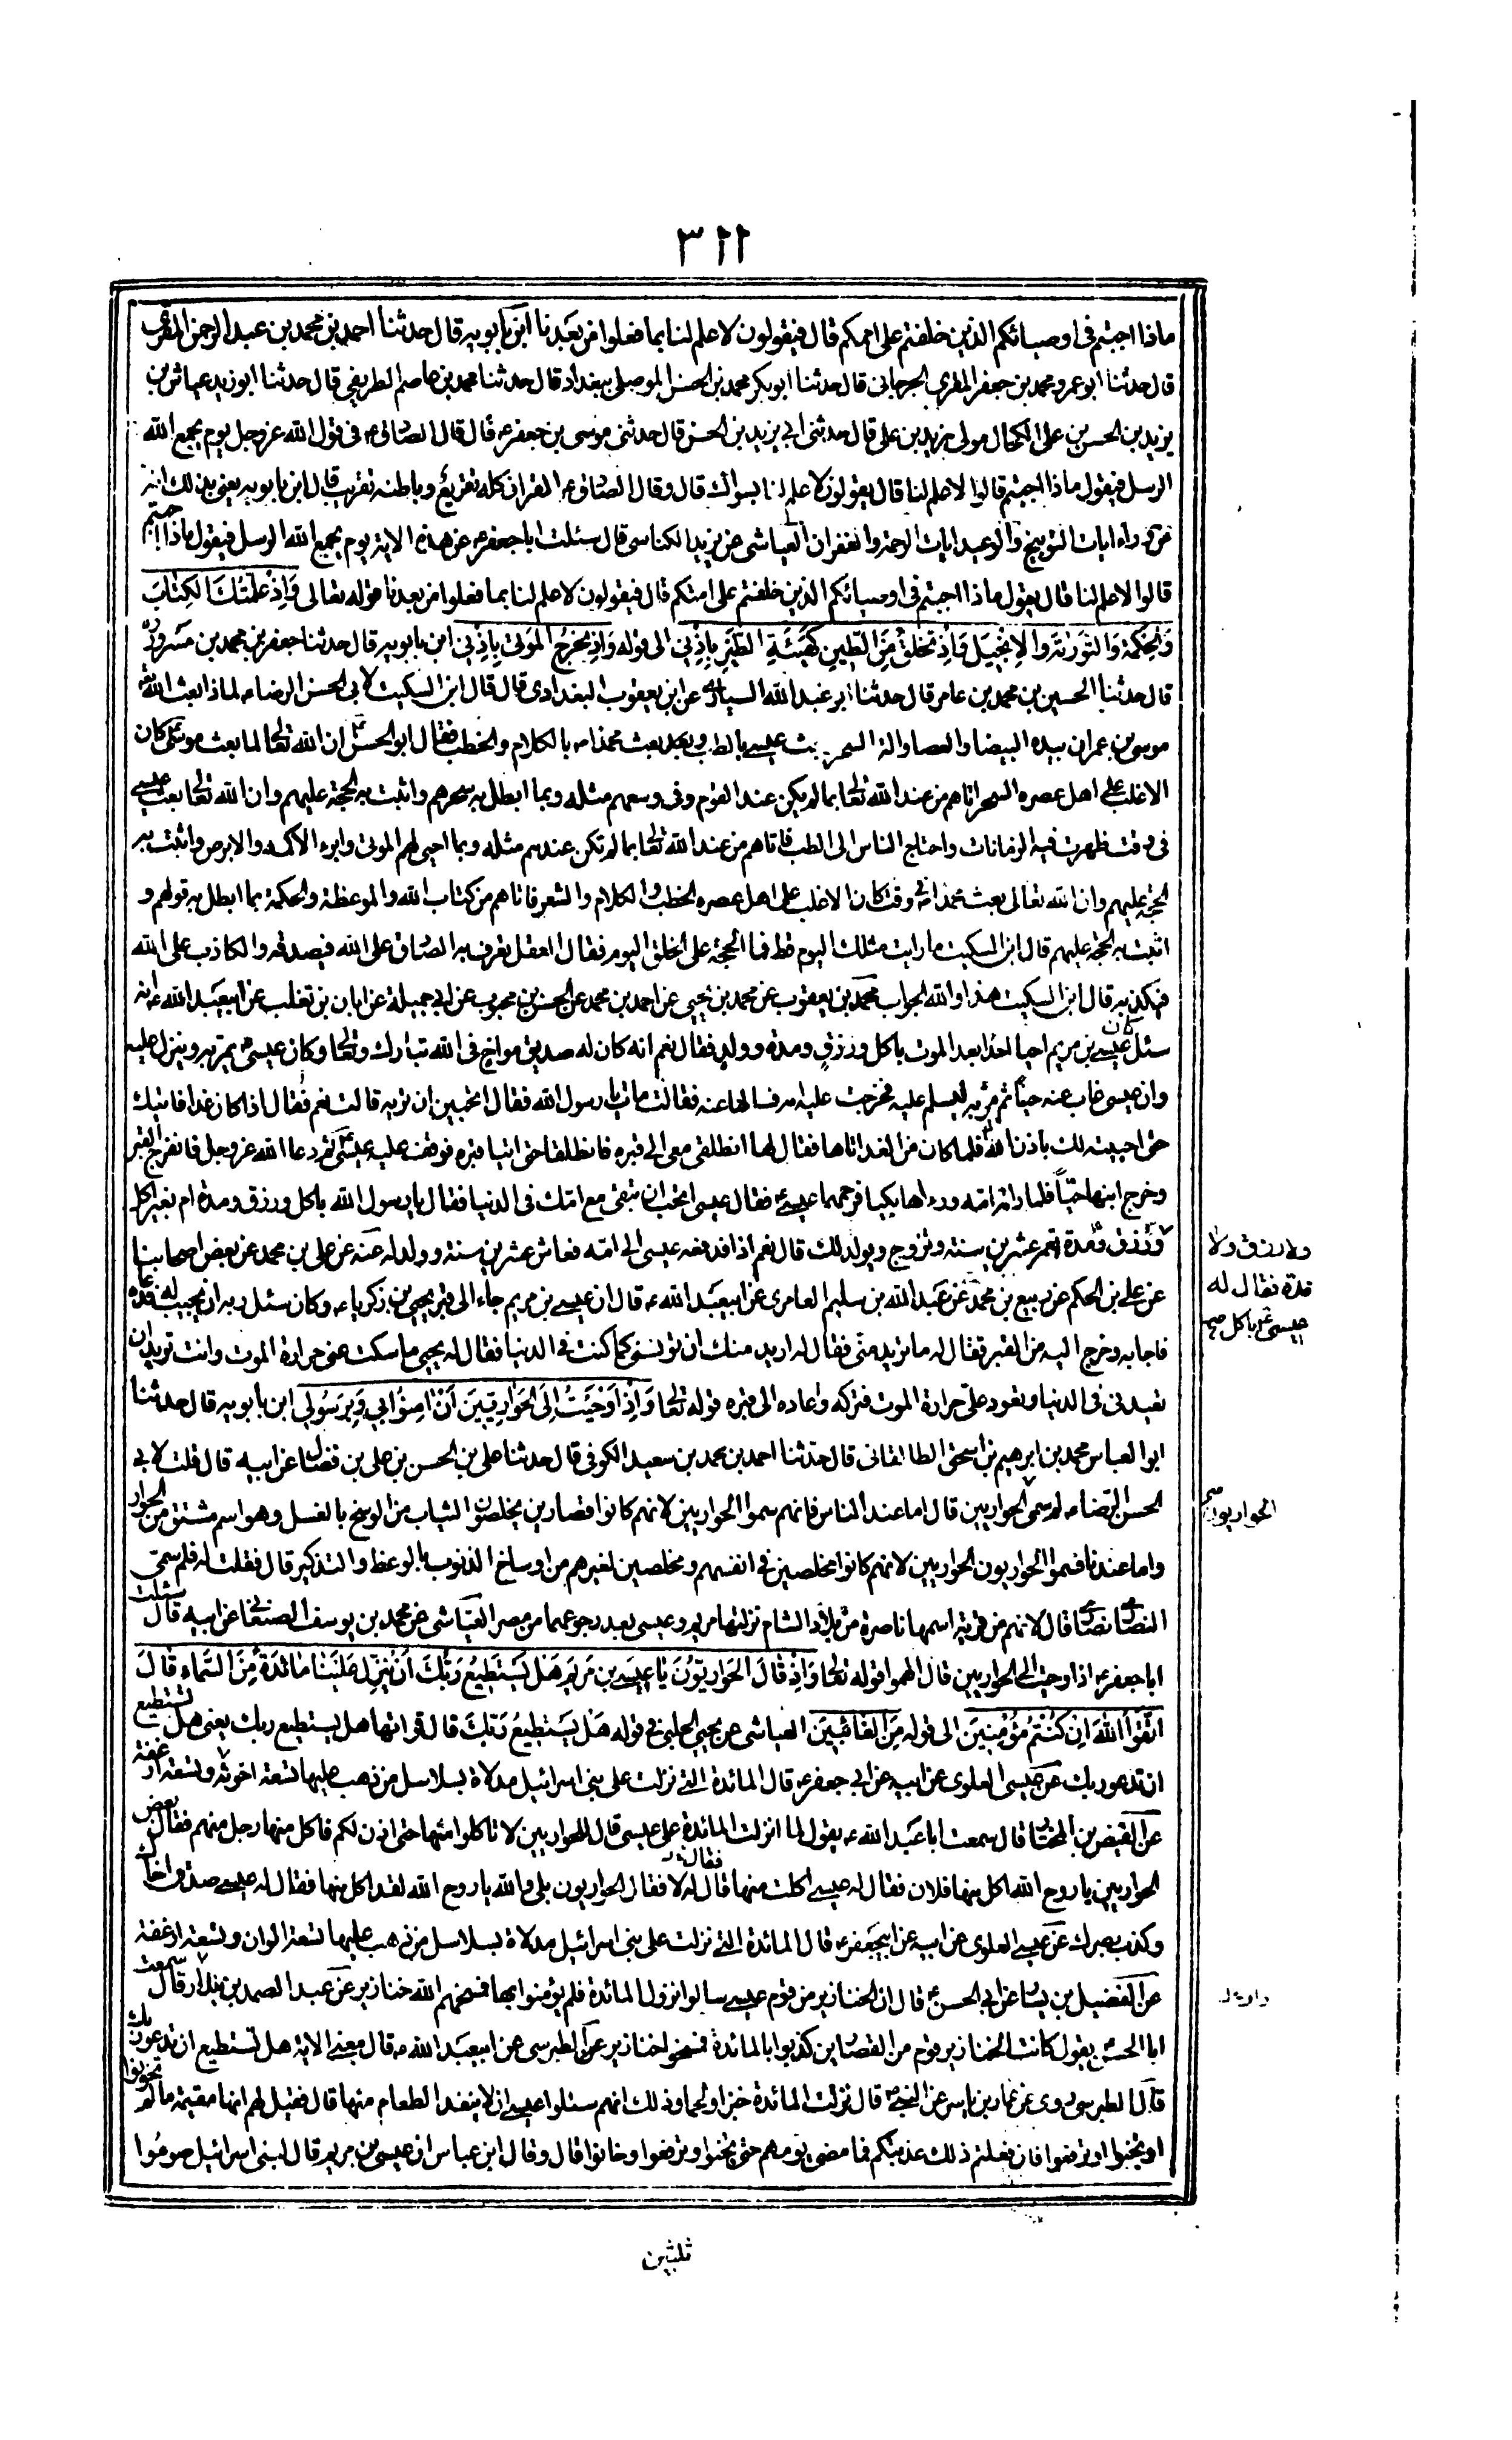 ٣١١
ماذا اجبتم فى اوصيائكم الذين خلفتم على امتكم قال فيقولون لا علم لنا بما فعلوا من بعدنا ابن بابويه قال حدثنا احمد بن محمد بن عبد الرحمن المقرى
قال حدثنا ابو عمرو محمد بن جعفر المقرى الجرجانى قال حدثنا ابو بكر محمد بن الحسن الموصلى ببغداد قال حدثنا محمد بن عاصم الطريفى قال حدثنا ابو زيد عياش بن
يزيد بن الحسن بن على الكحال مولى زيد بن على قال حدثنى ابى يزيد بن الحسن قال حدثنى موسى بن جعفر ع قال قال الصادق ع فى قول الله عز وجل يوم يجمع الله
الرسل فيقول ماذا اجبتم قالوا لا علم لنا قال يقولون لا علم لنا بسواك قال وقال الصادق ع القران كله تقريع وباطنه تقريب قال ابن بابويه يعنى بذلك انه
من وراء ايات التوبيخ والوعيد ايات الرحمة والغفران العياشى عن يزيد الكناسى قال سئلت ابا جعفر ع عن هذه الاية يوم يجمع الله الرسل فيقول ماذا اجبتم
قالوا لا علم لنا قال يقول ماذا اجبتم فى اوصيائكم الذين خلفتم على امتكم قال فيقولون لا علم لنا بما فعلوا من بعدنا قوله تعالى وَاِذْ عَلَّمْتُكَ الْكِتابَ
وَالْحِكْمَةَ وَالتَّوْرٰيةَ وَالْاِنْجيلَ وَاِذْ تَخْلُقُ مِنَ الطّينِ كَهَيْئَةِ الطَّيْرِ بِاِذْنى الى قوله وَاِذْ تُخْرِجُ الْمَوْتى بِاِذْنى ابن بابويه قال حدثنا جعفر بن محمد بن مسرور ره
قال حدثنا الحسين بن محمد بن عامر قال حدثنا ابو عبد الله السيارى عن ابى يعقوب البغدادى قال قال ابن السكيت لابى الحسن الرضا ع لماذا بعث الله
موسى بن عمران بيده البيضا والعصا والة السحر وبعث عيسى بالطب وبعث محمدا ص بالكلام والخطب فقال ابو الحسن ع ان الله تعالى لما بعث موسى ع كان
الاغلب على اهل عصره السحر اتاهم من عند الله تعالى بما لم يكن عند القوم وفى وسعهم مثله وبما ابطل به سحرهم واثبت به الحجة عليهم وان الله تعالى بعث عيسى
فى وقت ظهرت فيه الزمانات واحتاج الناس الى الطب فاتاهم من عند الله تعالى بما لم تكن عندهم مثله وبما احيى لهم الموتى وابرء الاكمه والابرص واثبت به
الحجة عليهم وان الله تعالى بعث محمدا ص فى وقت كان الاغلب على اهل عصره الخطب والكلام والشعر فاتاهم من كتاب الله والموعظة والحكمة بما ابطل به قولهم و
اثبت به الحجة عليهم قال ابن السكيت ما رايت مثلك اليوم قط فما الحجة على الخلق اليوم فقال العقل تعرف به الصادق على الله فيصدقه والكاذب على الله
فيكذبه قال ابن السكيت هذا والله الجواب محمد بن يعقوب عن محمد بن يحيى عن احمد بن محمد عن الحسن بن محبوب عن ابى جميلة عن ابان بن تغلب عن ابيعبد الله ع انه
سئل كان عيسى بن مريم احيا احدا بعد الموت باكل ورزق ومدة وولد فقال نعم انه كان له صديق مواخ فى الله تبارك وتعالى وكان عيسى ع يمر به وينزل عليه
وان عيسى غاب عنه حينا ثم مر به ليسلم عليه فخرجت عليه امه فسالها عنه فقالت مات يا رسول الله فقال اتحبين ان تريه قالت نعم فقال اذا كان غدا فاتيك
حتى احييته لك باذن الله فلما كان من الغد اتاها فقال لها انطلقى معى الى قبره فانطلقا حتى اتيا قبره فوقف عليه عيسى ع ثم دعا الله عز وجل فانفرج القبر
وخرج ابنها حيّاً فلما راته امه وراها بكيا فرحمهما عيسى ع فقال عيسى اتحب ان تبقى مع امك فى الدنيا فقال يا رسول الله باكل ورزق ومدة ام بغير اكل
ورزق ومدة تعمر عشرين سنة وتزوج ويولد لك قال نعم اذا فدفعه عيسى الى امه فعاش عشرين سنة وولد له عنه عن على بن محمد عن بعض اصحابنا
عن على بن الحكم عن ربيع بن محمد عن عبد الله بن سليم العامرى عن ابيعبد الله ع قال ان عيسى بن مريم جاء الى قبر يحيى بن زكريا ع وكان سئل ربه ان يحييه له فدعاه
فاجابه وخرج اليه من القبر فقال له ما تريد منى فقال له اريد منك ان تونسنى كما كنت فى الدنيا فقال له يحيى ما سكنت عنى حرارة الموت وانت تريد ان
تعيدنى فى الدنيا وتعود على حرارة الموت فتركه وعاده الى قبره قوله تعالى وَاِذْ اَوْحَيْتُ اِلَى الْحَوارِيّينَ اَنْ امِنُوا بى وَبِرَسُولى ابن بابويه قال حدثنا
ابو العباس محمد بن ابرهيم بن اسحق الطالقانى قال حدثنا احمد بن محمد بن سعيد الكوفى قال حدثنا على بن الحسن بن على بن فضال عن ابيه قال قلت لابى
الحسن الرضا ع لم سمى الحواريين قال اما عند الناس فانهم سموا الحواريين لانهم كانوا قصارين يخلصون الثياب من الوسخ بالغسل وهو اسم مشتق من الحوار
واما عندنا فسموا الحواريون الحواريين لانهم كانوا مخلصين فى انفسهم ومخلصين لغيرهم من اوساخ الذنوب بالوعظ والتذكير قال فقلت له فلم سمى
النصارى نصارى قال لانهم من قرية اسمها ناصرة من بلاد الشام نزلتها مريم وعيسى بعد رجوعهما من مصر العياشى عن محمد بن يوسف الصنعانى عن ابيه قال سئلت
ابا جعفر ع اذ اوحيت الى الحواريين قال الهموا قوله تعالى وَاِذْ قالَ الْحَوارِيُّونَ يا عيسَى بن مَرْيَمَ هَلْ يَسْتَطيعُ رَبُّكَ اَنْ يُنَزِّلَ عَلَيْنا مائِدَةً مِنَ السَّماءِ قالَ
اتَّقُوا اللهَ اِنْ كُنْتُمْ مُؤْمِنينَ الى قوله مِنَ الْعالَمينَ العياشى عن يحيى الحلبى فى قوله هَلْ يَسْتَطيعُ رَبُّكَ قال قراتها هل يستطيع ربك يعنى هل تستطيع
ان تدعو ربك عن عيسى العلوى عن ابيه عن ابى جعفر ع قال المائدة التى نزلت على بنى اسرائيل مدلاة بسلاسل من ذهب عليها تسعة اخونة وتسعة ارغفة
عن الفيض بن المختار قال سمعت ابا عبد الله ع يقول لما انزلت المائدة على عيسى قال للحواريين لا تاكلوا منها حتى اذن لكم فاكل منها رجل منهم فقال بعض
الحواريين يا روح الله اكل منها فلان فقال له عيسى اكلت منها قال له لا فقال الحواريون بلى والله يا روح الله لقد اكل منها فقال له عيسى صدق اخاك
وكذب بصرك عن عيسى العلوى عن ابيه عن ابيجعفر ع قال المائدة التى نزلت على بنى اسرائيل مدلاة بسلاسل من ذهب عليها تسعة الوان وتسعة ارغفة
عن الفضيل بن يسار عن ابى الحسن ع قال ان الخنازير من قوم عيسى سالوا نزول المائدة فلم يؤمنوا بها فمسخهم الله خنازير عن عبد الصمد بن بندار قال سمعت
ابا الحسن ع يقول كانت الخنازير قوم من القصارين كذبوا بالمائدة فمسخوا خنازير عن الطبرسى عن ابيعبد الله ع قال معنى الاية هل تستطيع ان تدعو ربك
قال الطبرسى روى عن عمار بن ياسر عن النبى ص قال نزلت المائدة خبزا ولحما وذلك انهم سئلوا عيسى ان لا ينفد الطعام منها قال فقيل لهم انها مقيمة ما لم تخونوا
او تخبوا او ترفعوا فان فعلتم ذلك عذبتكم فما مضى يومهم حتى تخبوا ورفعوا وخانوا قال وقال ابن عباس ان عيسى بن مريم قال لبنى اسرائيل صوموا
ولا رزق ولا
مدة فقال له
عيسى ع باكل صح
الحواريون صح
ثلثين